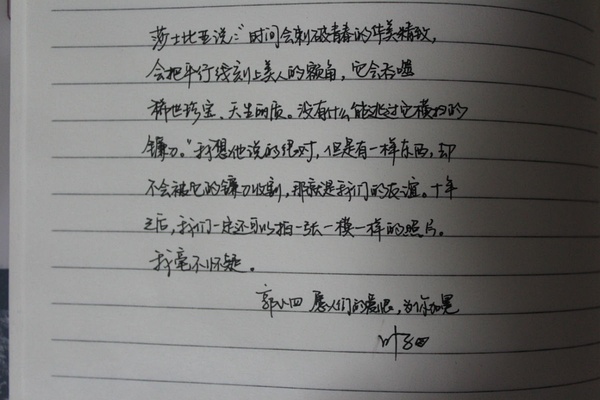 莎士比亚说："时间会刺破青春的华美精致，
会把平行线刻上美人的额角，它会吞噬
稀世珍宝、天生丽质。没有什么能逃过它横扫的
镰刀。"我想他说的绝对，但是有一样东西，却
不会被它的镰刀收割，那就是我们的友谊。十年
之后，我们一定还可以拍一张一模一样的照片。
我毫不怀疑。
郭小四 愿人们的爱恩，为你加冕
叶子